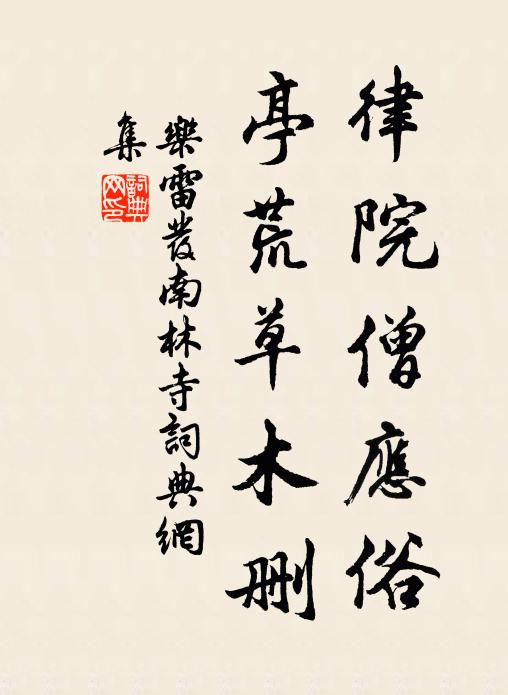 律院僧應俗
亭荒草木刪
樂雷發南林寺詞典網
集
詞典
網印